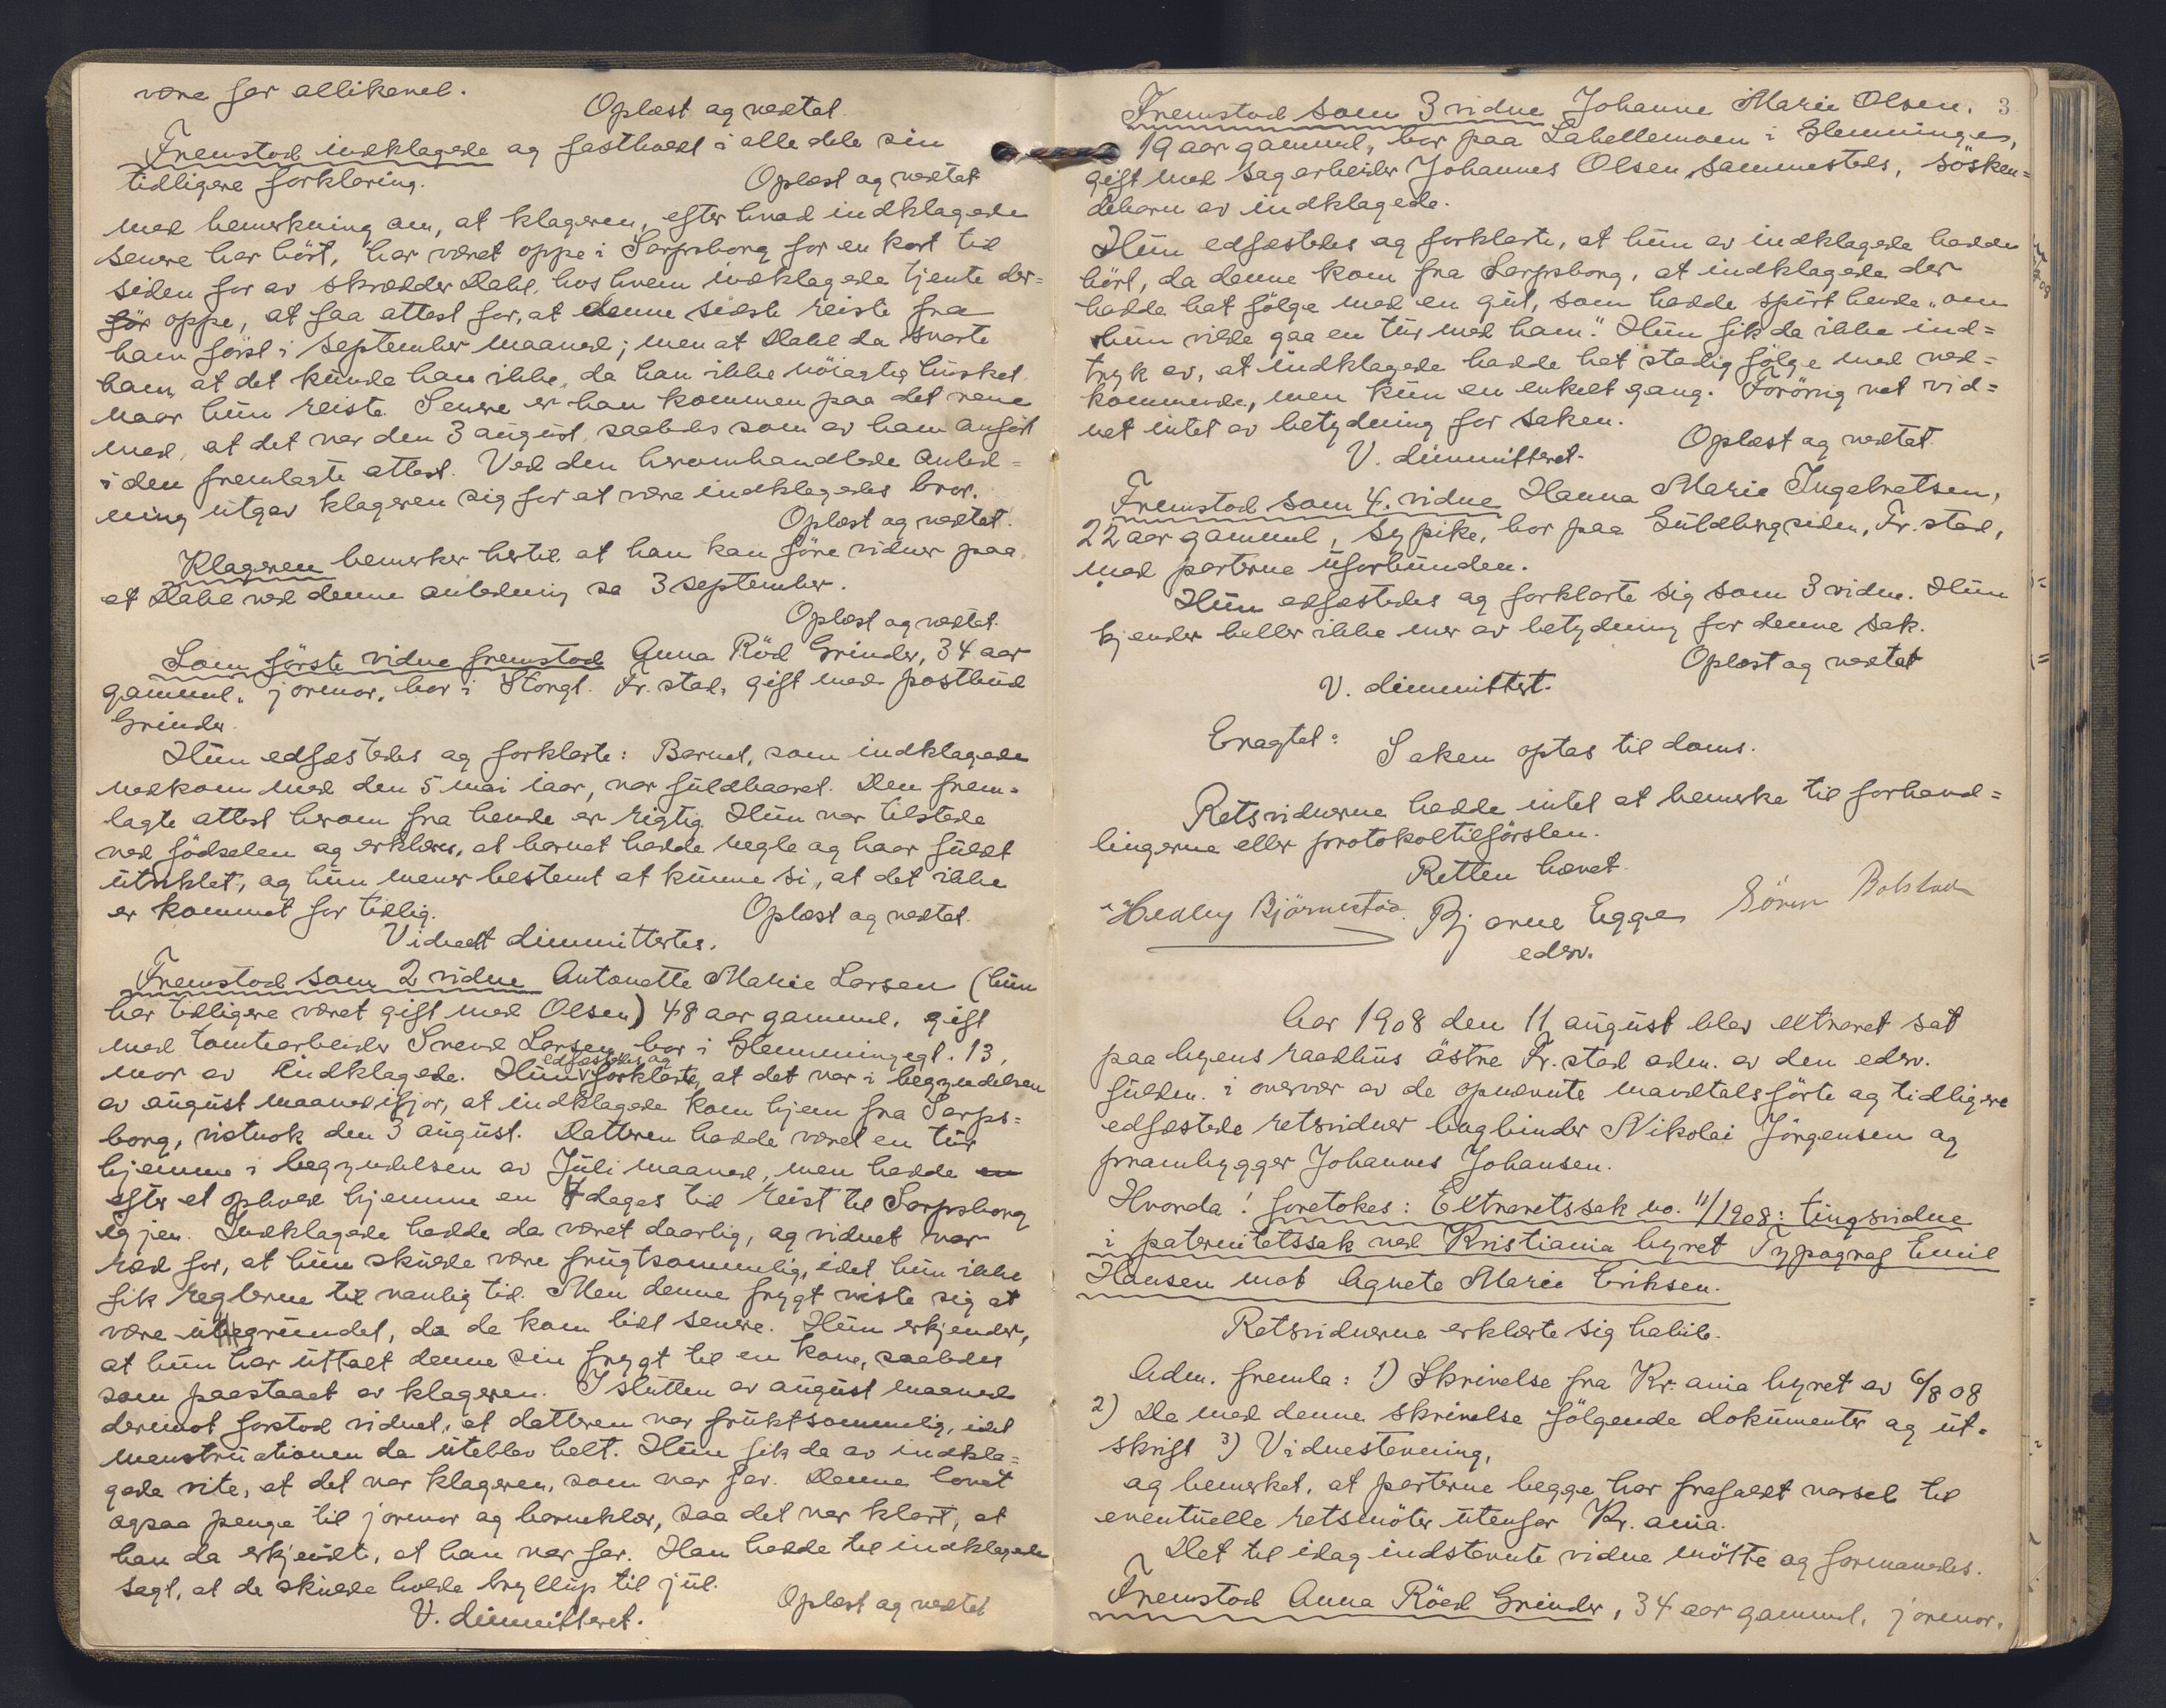 være far allikevel.
Oplæst og vedtat.
Fremstod indklagede og fastholdt i alle dele sin
tidligere forklaring.
Oplæst og vedtat
med bemerkning om, at klageren, efter hvad indklagede
senere har hört, har været oppe i Sarpsborg for en kort tid
siden for av skrædder Dahl, hos hvem indklagede tjente der-
för oppe, at faa attest for, at denne sidste reiste fra
ham först i september maaned; men at Dahl da svarte
ham, at det kunde han ikke, da han ikke nöiagtig husket
naar hun reiste. Senere er han kommen paa det rene
med, at det var den 3 august, saaledes som av ham anfört
i den fremlagte attest. Ved den heromhandlede anled-
ning utgav klageren sig for at være indklagedes bror.
Oplæst og vedtat.
Klageren bemerker hertil at han kan före vidner paa
at Dahl ved denne anledning sa 3 september.
Oplæst og vedtat.
Som förste vidne fremstod Anna Röd Grinder, 34 aar
gammel, jormor, bor i Storgt. Fr.stad, gift med postbud
Grinder.
Hun edfæstedes og forklarte: Barnet, som indklagede
nedkom med den 5 mai iaar, var fuldbaaret. Den frem-
lagte attest herom fra hende er rigtig. Hun var tilstede
ved födselen og erklærer, at barnet hadde negle og haar fuldt
utviklet, og hun mener bestemt at kunne si, at det ikke
er kommet for tidlig.
Oplæst og vedtat.
Vidnet dimmittertes.
Fremstod som 2 vidne Antonette Marie Larsen (hun
har tidligere været gift med Olsen) 48 aar gammel, gift
med tomtearbeider Svend Larsen, bor i Glemmingegt. 13,
mor av indklagede. Hun edfæstedes og forklarte, at det var i begyndelsen
av august maaned ifjor, at indklagede kom hjem fra Sarps-
borg, vistnok den 3 august. Datteren hadde været en tur
hjemme i begyndelsen av Juli maaned, men hadde en
efter et ophold hjemme en 4 dages tid reist til Sarpsborg
igjen. Indklagede hadde da været daarlig, og vidnet var
ræd for, at hun skulde være frugtsommelig, idet hun ikke
fik reglerne til vanlig tid. Men denne frygt viste sig at
være ubegrundet, da de kom lidt senere. Hun erkjender,
at hun har uttalt denne sin frygt til en kone, saaledes
som paastaaet av klageren. I slutten av august maaned
derimot forstod vidnet, at datteren var fruktsommelig, idet
menstruationen da uteblev helt. Hun fik da av indkla-
gede vite, at det var klageren, som var far. Denne lovet
ogsaa penge til jormor og barneklær, saa det var klart, at
han da erkjendte, at han var far. Han hadde til indklagede
sagt, at de skulde holde bryllup til jul.
Oplæst og vedtat
V. dimmitteret.
3
Fremstod som 3 vidne Johanne Marie Olsen,
19 aar gammel, bor paa Labellemoen i Glemminge,
gift med sagarbeider Johannes Olsen sammesteds, sösken-
debarn av indklagede.
Hun edfæstedes og forklarte, at hun av indklagede hadde
hört, da denne kom fra Sarpsborg, at indklagede der
hadde hat fölge med en gut, som hadde spurt hende „om
hun vilde gaa en tur med ham." Hun fik da ikke ind-
tryk av, at indklagede hadde hat stadig fölge med ved-
kommende, men kun en enkelt gang. Forövrig vet vid-
net intet av betydning for saken.
Oplæst og vedtat.
V. dimmitteret.
Fremstod som 4. vidne Hanna Marie Ingebretsen,
22 aar gammel, sypike, bor paa Guldbergsiden, Fr.stad,
med parterne uforbunden.
Hun edfæstedes og forklarte sig som 3 vidne. Hun
kjender heller ikke mer av betydning for denne sak.
Oplæst og vedtat
V. dimmittert.
Eragtet: Saken optas til doms.
Retsvidnerne hadde intet at bemerke til forhand-
lingerne eller protokoltilförslen.
Retten hævet.
Hedley Björnestad. Bjarne Egge Sören Bolstad
edsv.
Aar 1908 den 11 august blev extraret sat
paa byens raadhus östre Fr.stad adm. av den edsv.
fuldm. i overvær av de opnævnte mandtalsförte og tidligere
edfæstede retsvidner bogbinder Nikolai Jörgensen og
prambygger Johannes Johansen.
Hvorda! foretokes: Extraretssak no. 11/1908: tingsvidne
i paternitetssak ved Kristiania byret Typograf Emil
Hansen mot Agnete Marie Eriksen.
Retsvidnerne erklærte sig habile.
Adm. fremla: 1) Skrivelse fra Kr.ania byret av 6/8 08
2) De med denne skrivelse fölgende dokumenter og ut-
skrift 3) Vidnestevning,
og bemerket, at parterne begge har frafaldt varsel til
eventuelle retsmöter utenfor Kr.ania.
Det til idag indstevnte vidne mötte og formanedes.
Fremstod Anna Röed Grinder, 34 aar gammel, jormor,